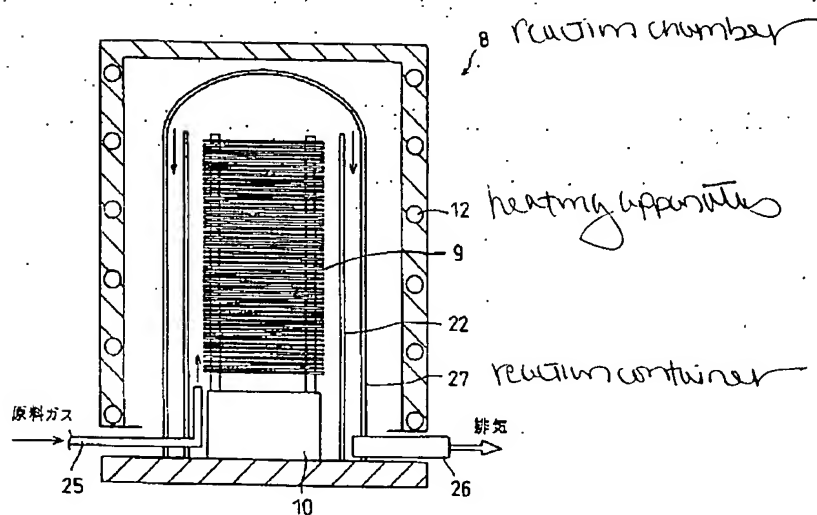 8 reaction chamber
12 heating apparatus
9
22
27 reaction container
原料ガス
排気
25
26
10